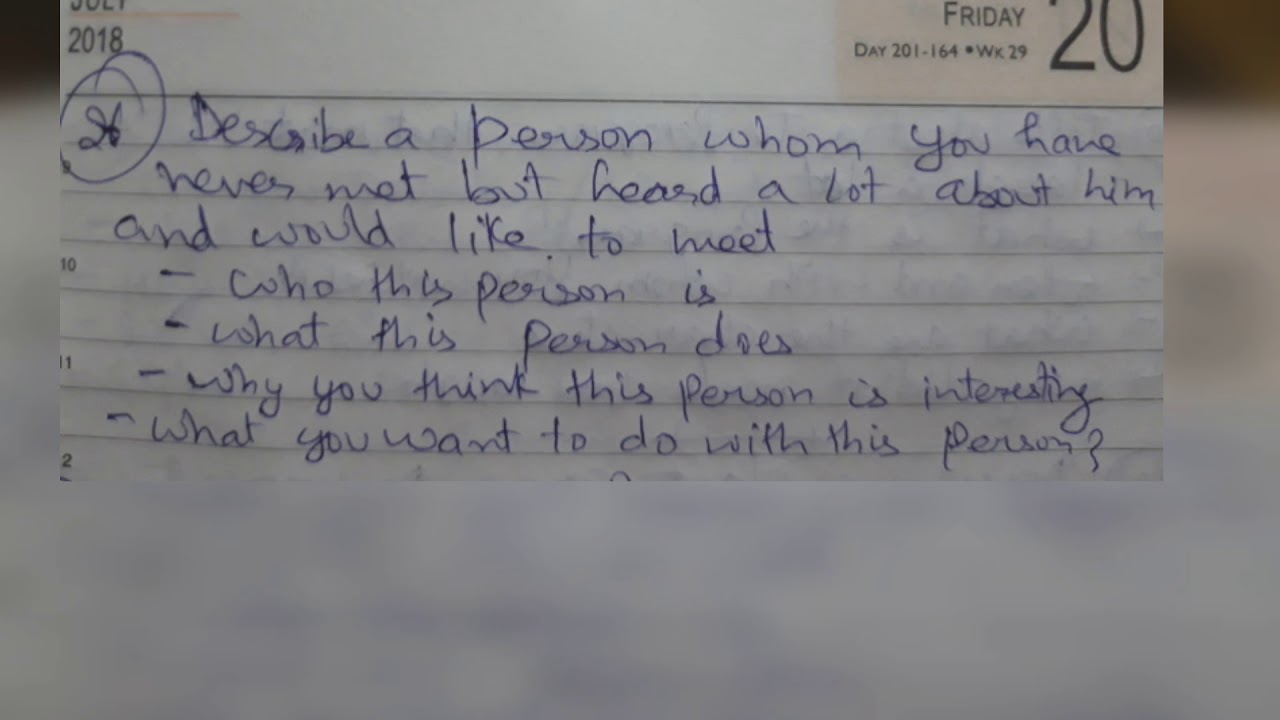 JULY
2018
FRIDAY 20
DAY 201-164 • WK 29
26 Describe a person whom you have
never met but heard a lot about him
and would like to meet
10
- who this person is
- what this person does
11
- why you think this person is interesting
- what you want to do with this person?
2